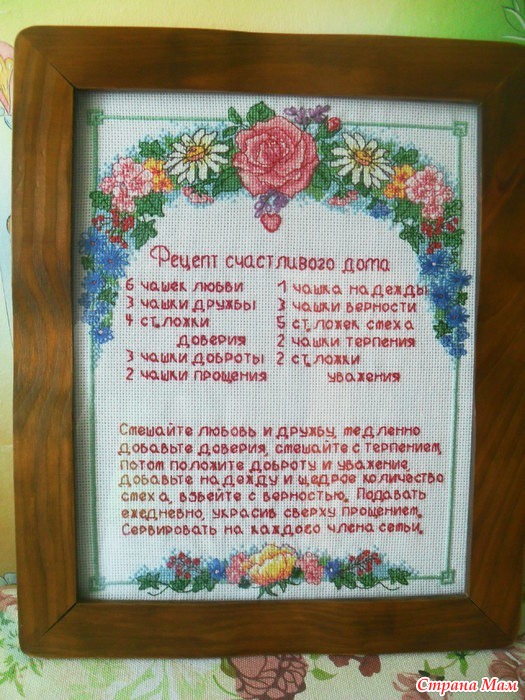 Рецепт счастливого дома
6 чашек любви
3 чашки дружбы
4 ст. ложки
доверия
3 чашки доброты
2 чашки прощения
1 чашка надежды
3 чашки верности
5 ст. ложек смеха
2 чашки терпения
2 ст. ложки
уважения
Смешайте любовь и дружбу, медленно
добавьте доверия, смешайте с терпением,
потом положите доброту и уважение,
добавьте надежду и щедрое количество
смеха, взбейте с верностью. Подавать
ежедневно, украсив сверху прощением.
Сервировать на каждого члена семьи.
Страна Мам